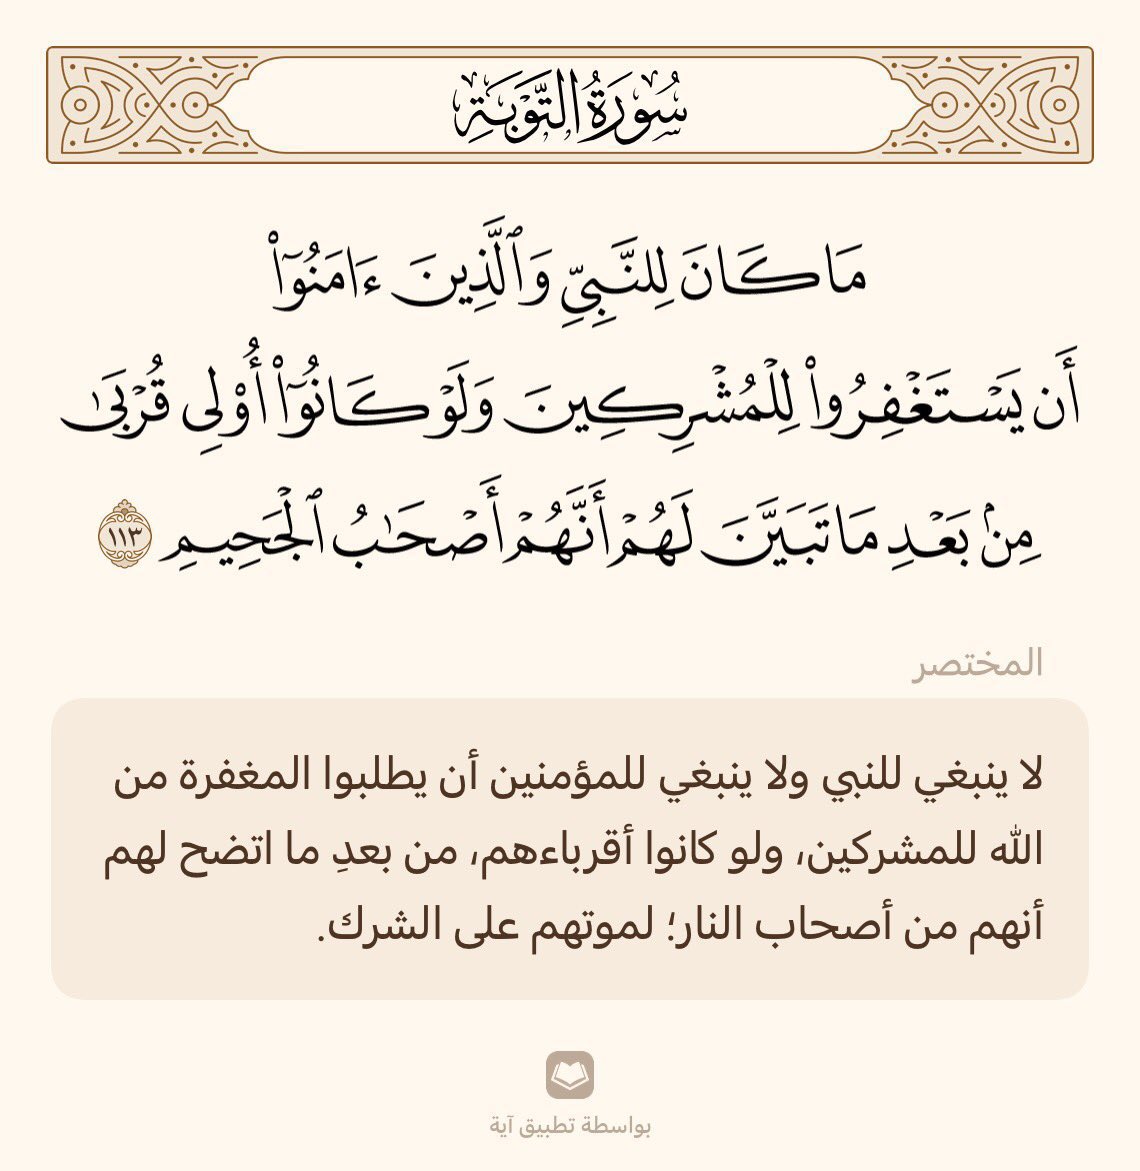 سُورَةُ التَّوْبَةِ
مَا كَانَ لِلنَّبِيِّ وَٱلَّذِينَ ءَامَنُوٓا۟
أَن يَسْتَغْفِرُوا۟ لِلْمُشْرِكِينَ وَلَوْ كَانُوٓا۟ أُو۟لِى قُرْبَىٰ
مِنۢ بَعْدِ مَا تَبَيَّنَ لَهُمْ أَنَّهُمْ أَصْحَـٰبُ ٱلْجَحِيمِ ١١٣
المختصر
لا ينبغي للنبي ولا ينبغي للمؤمنين أن يطلبوا المغفرة من
الله للمشركين، ولو كانوا أقرباءهم، من بعدِ ما اتضح لهم
أنهم من أصحاب النار؛ لموتهم على الشرك.
بواسطة تطبيق آية